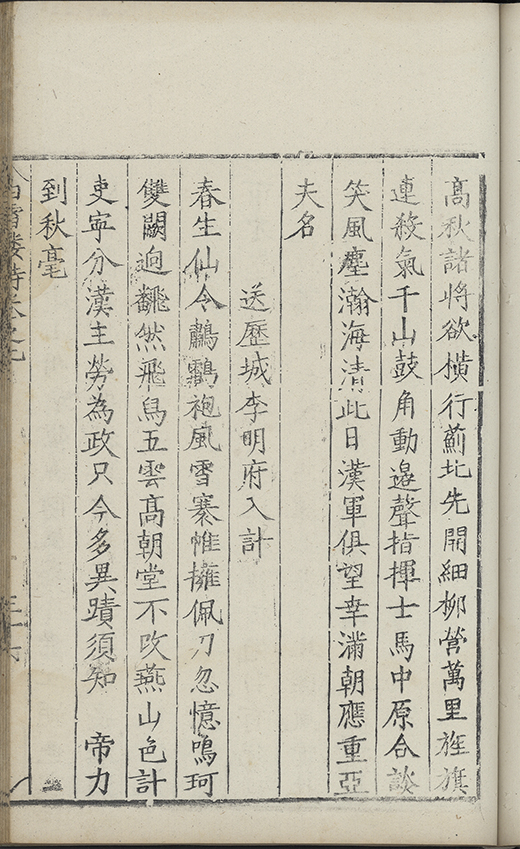 高秋諸將欲橫行薊北先開細柳營萬里旌旗
連殺氣千山鼓角動邊聲指揮士馬中原合談
笑風塵瀚海清此日漢軍俱望幸滿朝應重亞
夫名
送歷城李明府入計
春生仙令鸘鷞袍風雪褰帷擁佩刀忽憶鳴珂
雙闕迥飜然飛舄五雲高朝堂不改燕山色計
吏寧分漢主勞為政只今多異蹟須知 帝力
到秋毫
白雪樓詩卷之